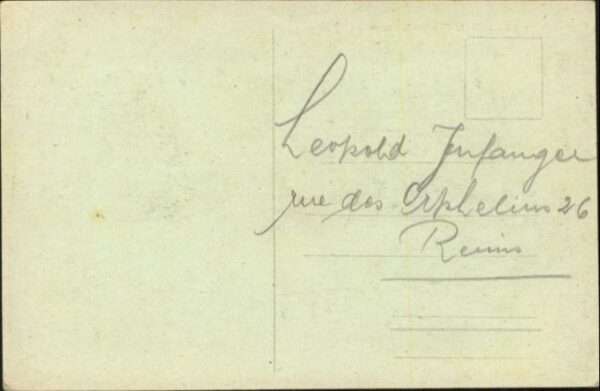 Leopold Infanger
rue des Orphelins 26
Reims